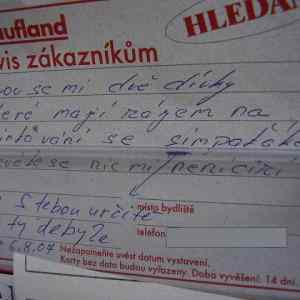 ufland
HLEDÁ
vis zákazníkům
ou se mi dvě dívky
eré mají zájem na
se simpaťáke
se nic mi neničiš
S tebou určitě
místo bydliště
ty debyle
telefon
6.8.07
Nezapomeňte uvést datum vystavení.
Karty bez data budou vyřazeny. Doba vyvěšení: 14 dní.